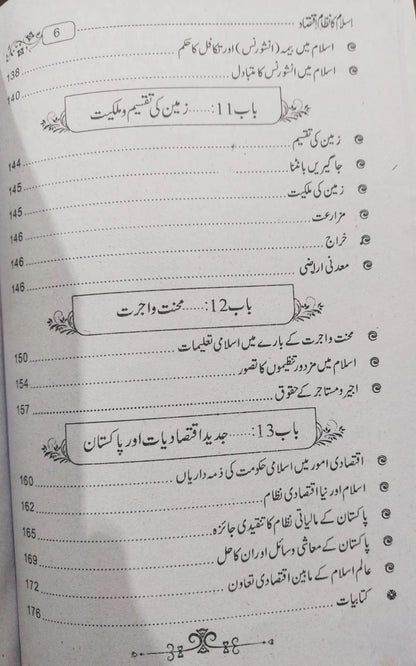 اسلام کا نظام اقتصاد 6
اسلام میں بیمہ (انشورنس) اور تکافل کا حکم 138
اسلام میں انشورنس کا متبادل 140
باب 11: ...... زمین کی تقسیم و ملکیت
زمین کی تقسیم 144
جاگیریں بانٹنا 145
زمین کی ملکیت 145
مزارعت 146
خراج 146
معدنی اراضی 146
باب 12: ...... محنت و اجرت
محنت و اجرت کے بارے میں اسلامی تعلیمات 150
اسلام میں مزدور تنظیموں کا تصور 154
اجیر و مستاجر کے حقوق 157
باب 13: ...... جدید اقتصادیات اور پاکستان
اقتصادی امور میں اسلامی حکومت کی ذمہ داریاں 160
اسلام اور نیا اقتصادی نظام 162
پاکستان کے مالیاتی نظام کا تنقیدی جائزہ 165
پاکستان کے معاشی وسائل اور ان کا حل 169
عالم اسلام کے مابین اقتصادی تعاون 172
کتابیات 176